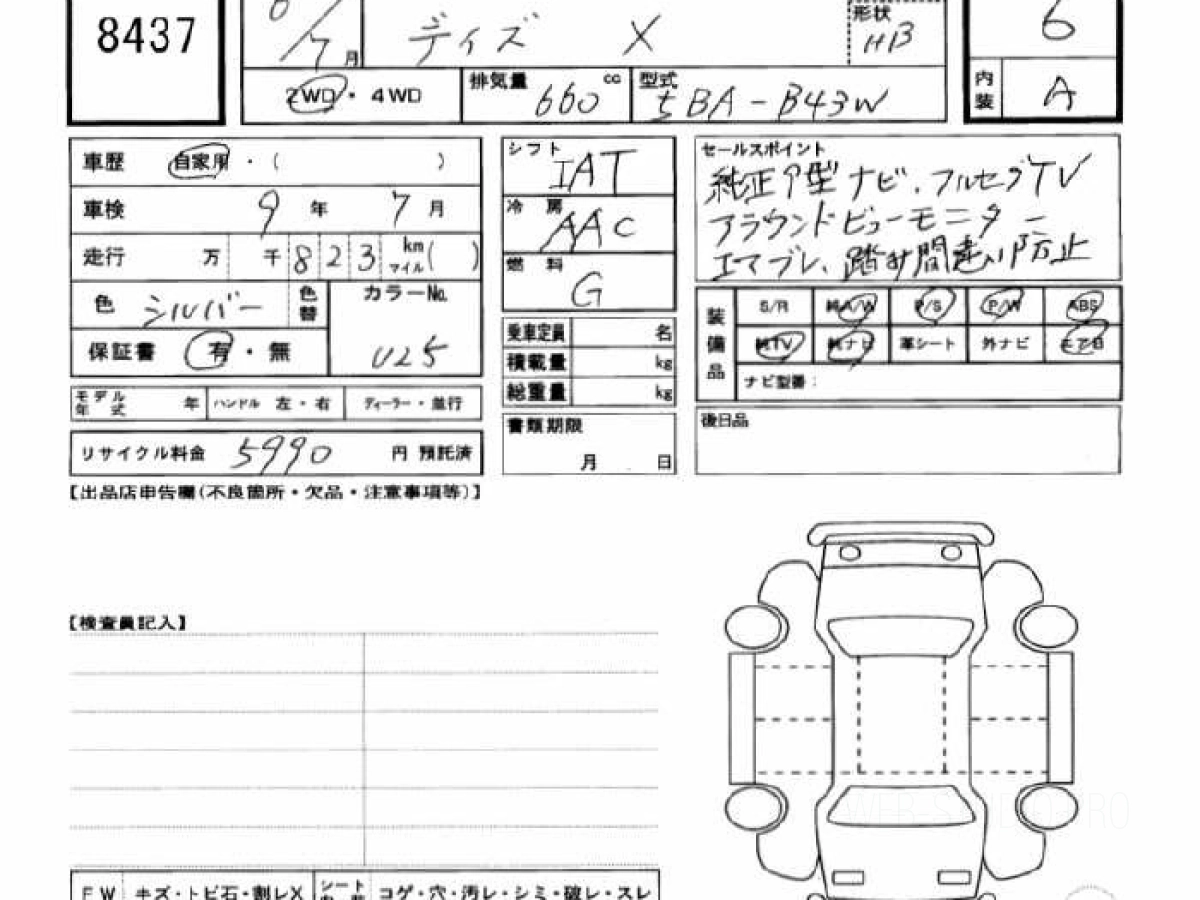 8437
6/7月 デイズ X 形状 HB
6
2WD・4WD 排気量 660 cc 型式 5BA-B43W
内装 A
車歴 自家用・( )
車検 9年 7月
走行 万 千 8 2 3 km マイル( )
色 シルバー 色替 カラーNo. U25
保証書 有・無
モデル年式 年 ハンドル 左・右 ディーラー・並行
リサイクル料金 5990 円 預託済
シフト IAT
冷房 AAC
燃料 G
乗車定員 名
積載量 kg
総重量 kg
書類期限
月 日
セールスポイント
純正9型ナビ、フルセグTV
アラウンドビューモニター
エマブレ、踏み間違い防止
装備品 S/R 純A/W P/S P/W ABS
純TV 純ナビ 革シート 外ナビ エアB
ナビ型番:
後日品
【出品店申告欄(不良箇所・欠品・注意事項等)】
【検査員記入】
FW キズ・トビ石・割レX シート コゲ・穴・汚レ・シミ・破レ・スレ